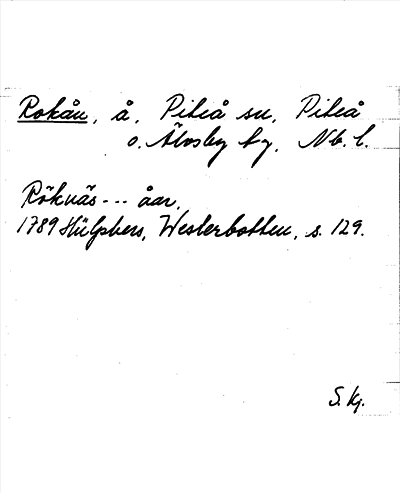 Rokån, å, Piteå sn, Piteå
o. Älvsby tg, Nb. l.
Röknäs --- åar,
1789 Hülphers, Westerbotten, s. 129.
S. Kj.